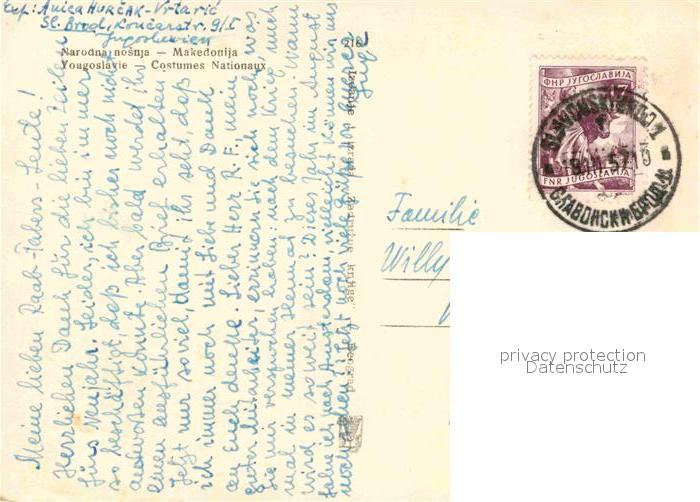 Exp: Anica HURČAK-Vrtarić
Sl. Brod, Končarstr. 9/I
Jugoslawien
Narodna nošnja — Makedonija
Yougoslavie — Costumes Nationaux
218
Meine lieben Raab-Fabers-Leute!
Herzlichen Dank für die lieben Zeilen
fürs Neujahr. Leider, ich bin immer
so beschäftigt, daß ich bisher noch nicht
antworten konnte. Aber bald werdet ihr
einen ausführlichen Brief erhalten.
Jetzt nur soviel, damit ihr seht, daß
ich immer noch mit Liebe und Dank
an Euch denke. Lieber Herr R. F. mein
guter Mitarbeiter, erinnern Sie sich noch, was
Sie mir versprochen haben: nach dem Krieg mich
mal in meiner Heimat zu besuchen. Wann
wird es so weit sein? Dieses Jahr im August
fahre ich nach Amsterdam, vielleicht können wir uns
Jetzt
viele
ФНР ЈУГОСЛАВИЈА
FNR JUGOSLAVIJA
SLAVONSKI BROD 1
СЛАВОНСКИ БРОД
Beograd
Familie
Willy
privacy protection
Datenschutz